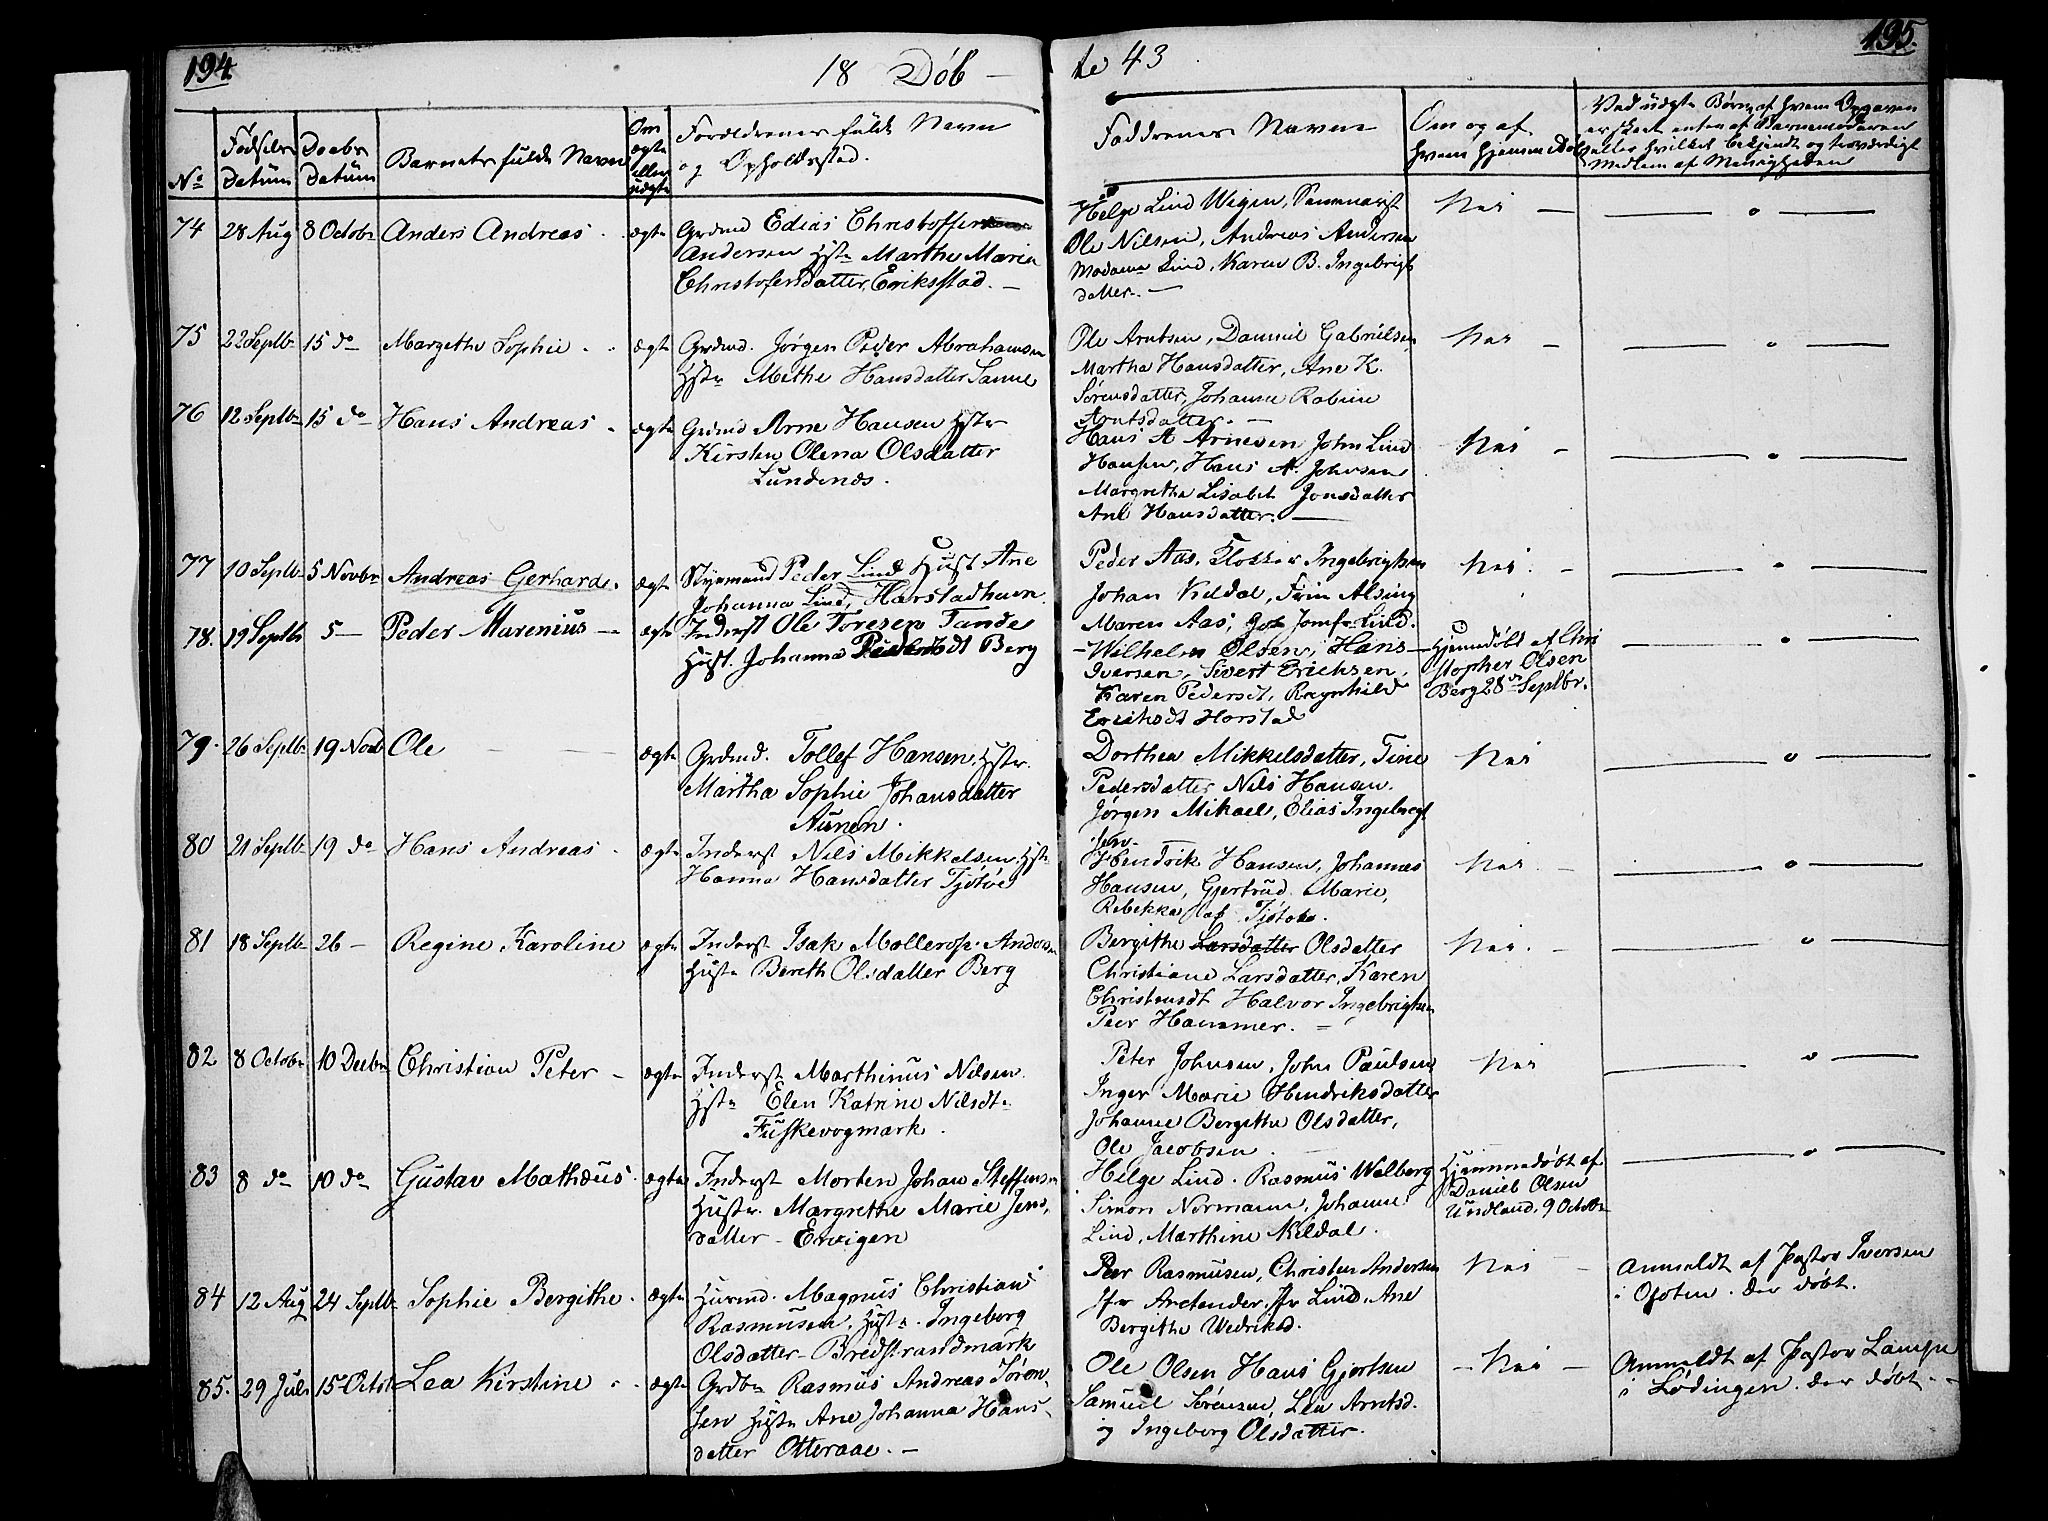 194.
18 Døb —
te 43
195.
No
Fødsels Datum
Daabs Datum
Barnets fulde Navn
Om ægte eller uægte
Forældrenes fulde Navn og Opholdssted.
Faddrenes Navne
Om og af hvem hjemmedøbt
Ved uægte Børn af hvem Opgaven er skeet enten af Barnemoderen eller hvilket bekjendt og troværdigt Medlem af Menigheden
74 28 Aug 8 Octobr Anders Andreas. ægte Grdmd Edias Christoffer
Andersen Hstr Marthe Maria
Christofersdatter, Eriksstad. —
Helge Lind Wigen,
Ole Nilsen, Andreas Andersen
Madame Lind, Karen B. Ingebrigt
datter. —
Nei — — o —
75 22 Septbr 15 do Margethe Sophie . . ægte Grdmd. Jørgen Peder Abrahamsen
Hstr Methe Hansdatter Sanne
Ole Arntsen, Daniel Gabrielsen
Martha Hansdatter, Ane K.
Sørensdatter, Johanne Robine
Arntsdatter. —
Nei — — o —
76 12 Septbr 15 do Hans Andreas . ægte Grdmd Arne Hansen Hstr
Kirsten Olena Olsdatter
Lundenes.
Hans A Arnesen John Lind
Hansen, Hans A. Johnsen
Margrethe Lisabet Jonsdatter
Ane Hansdatter. —
Nei — — o —
77 10 Septbr 5 Novbr Andreas Gerhard. ægte Styrmand Peder Lind Hust Ane
Johanna Lind, Harstadhavn.
Peder Aas, Klokker Ingebrigtsen
Johan Keldal, Alsing
Maren Aas, Jomfr Lind.
Nei. — — o —
78. 19 Septbr 5 — Peder Marenius — ægte Inderst Ole Toresen Tande
Hust. Johanna Pedersdt Berg
— Wilhelm Olsen, Hans
Iversen, Sivert Ericksen,
Karen Pedersdt, Ragnhild
Eriksdt Harstad
Hjemmedøbt af Chri
stopher Olsen
Berg 28de Septbr.
— o —
79. 26 Septbr 19 Novb Ole — — ægte Grdmd. Tollef Hansen, Hstr.
Martha Sophie Johansdatter
Aunen.
Dorthea Mikkelsdatter, Tine
Pedersdatter Nils Hansen.
Jørgen Mikael, Elias Ingebregt
sen.
Nei — o —
80 21 Septbr 19 do Hans Andreas . ægte Inderst Nils Mikkelsen Hstr
Hanna Hansdatter Tjøtøe
Hendrik Hansen, Johannes
Hansen, Gjertrud Marie,
Rebekka af Tjøtøe.
Nei. — — o —
81 18 Septbr 26 — Regine Karoline ægte Inderst Isak Møllerop Andersen
Hustr Bereth Olsdatter Berg
Bergithe Larsdatter Olsdatter
Christiane Larsdatter, Karen
Christensdt Halvor Ingebrigtsen
Peer Hammer. —
Nei. — — o —
82 8 Octobr 10 Decbr Christian Peter — ægte Inderst Marthinus Nilsen.
Hstr Elen Katrine Nilsdtr
Fuskevogmark.
Peter Johnsen, John Paulsen
Inger Marie Hendriksdatter
Johanne Bergithe Olsdatter,
Ole Jacobsen.
Nei — o —
83 8 do 10 do Gustav Mathæus. ægte Inderst Morten Johan Steffensen
Hustr. Margrethe Marie Jens-
datter — Ervigen
Helge Lind. Rasmus Walberg
Simon Normann, Johanne
Lind, Marthine Keldal.
Hjemmedøbt af
Daniel Olsen
Undland, 9 Octobr
— o —
84 12 Aug 24 Septbr Sophie Bergithe. ægte Husmd. Magnus Christian
Rasmusen, Hustr. Ingeborg
Olsdatter — Bredstrandmark
Peer Rasmusen, Christen Andersen
Jfr Arctander. Jfr Lind. Ane
Bergithe Wedriksd.
Nei — Anmeldt af Pastor Iversen
i Ofoten. der døbt.
85. 29 Juli 15 Octob Lea Kirstine . . ægte Grdbr Rasmus Andreas Søren-
sen Hustr Ane Johanna Hans-
datter Otteraae. —
Ole Olsen Hans Gjertsen
Samuel Sørensen, Lea Arntsd.
og Ingeborg Olsdatter.
— Nei — Anmeldt af Pastor
i Lødingen. der døbt. —